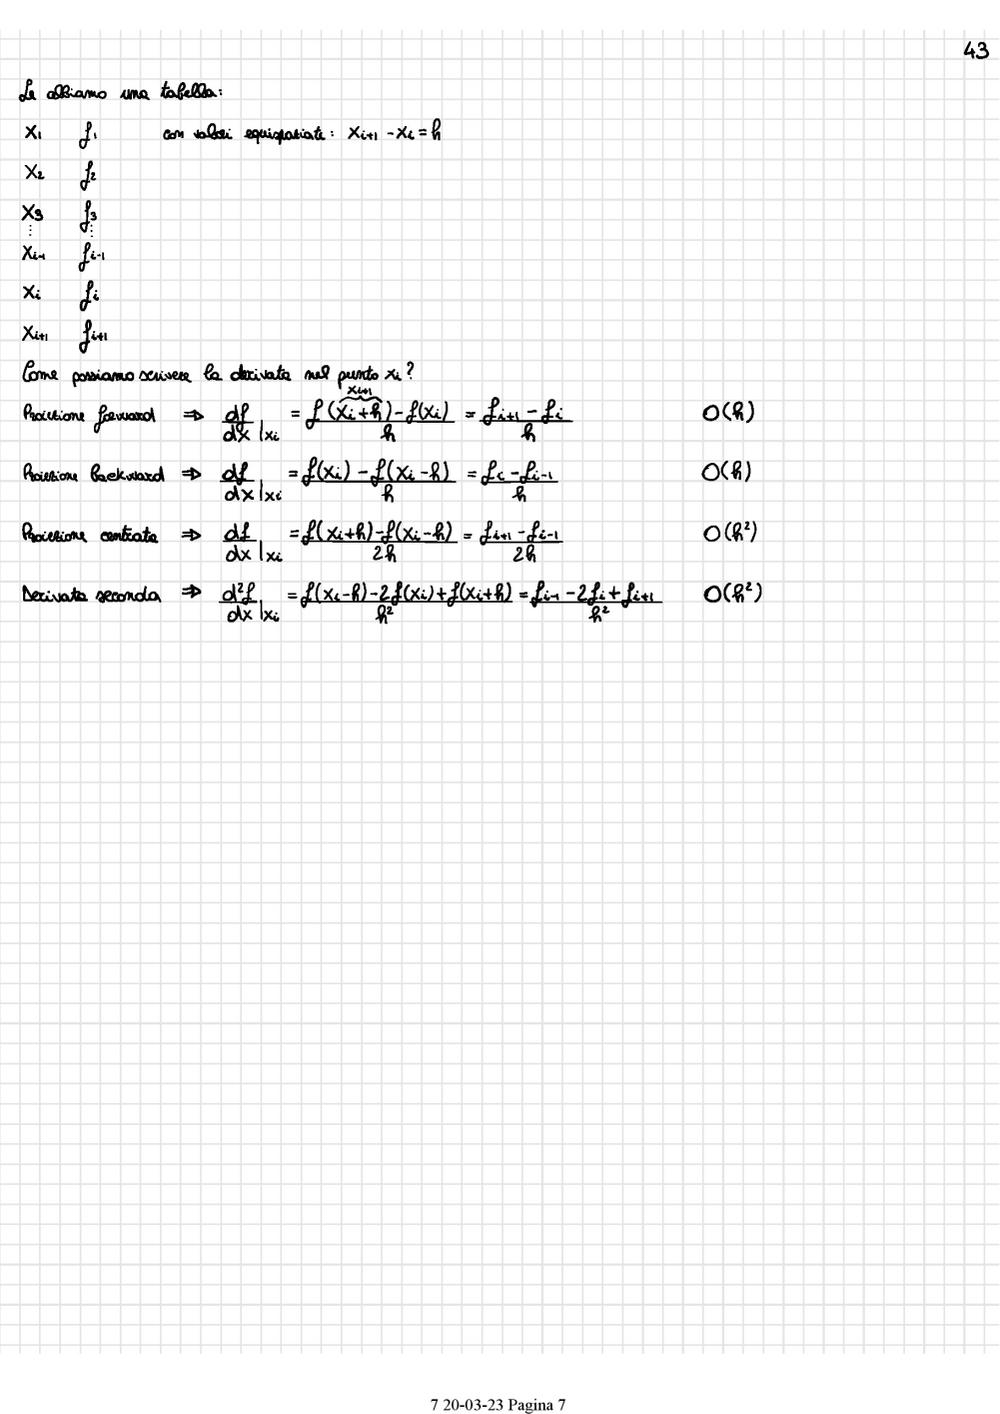 43
Se abbiamo una tabella:
x₁ f₁ con valori equispaziate: xᵢ₊₁ - xᵢ = h
x₂ f₂
x₃ f₃
⋮ ⋮
xᵢ₋₁ fᵢ₋₁
xᵢ fᵢ
xᵢ₊₁ fᵢ₊₁
Come possiamo scrivere la derivata nel punto xᵢ?
Proiezione forward ⇒ df/dx|xᵢ = (f(xᵢ+h) - f(xᵢ))/h = (fᵢ₊₁ - fᵢ)/h O(h)
xᵢ₊₁
Proiezione backward ⇒ df/dx|xᵢ = (f(xᵢ) - f(xᵢ-h))/h = (fᵢ - fᵢ₋₁)/h O(h)
Proiezione centrata ⇒ df/dx|xᵢ = (f(xᵢ+h) - f(xᵢ-h))/2h = (fᵢ₊₁ - fᵢ₋₁)/2h O(h²)
Derivata seconda ⇒ d²f/dx|xᵢ = (f(xᵢ-h) - 2f(xᵢ) + f(xᵢ+h))/h² = (fᵢ₋₁ - 2fᵢ + fᵢ₊₁)/h² O(h²)
7 20-03-23 Pagina 7